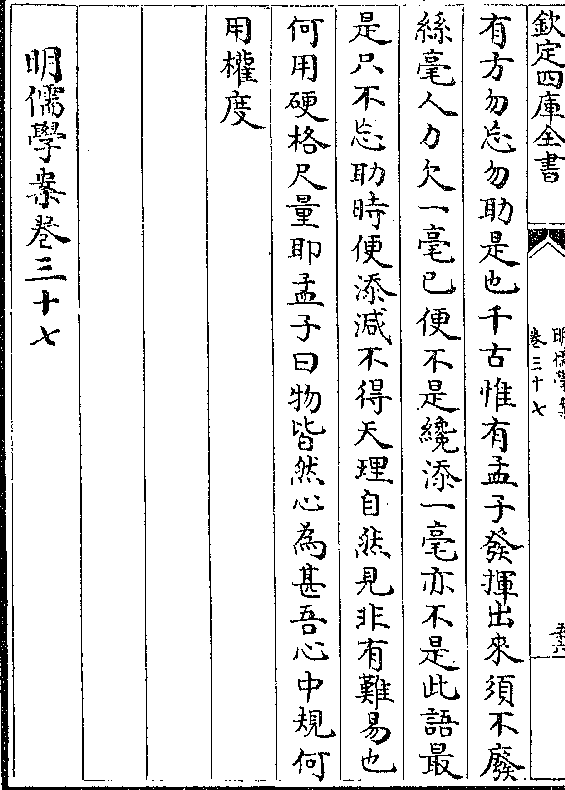 欽定四庫全書
明儒學案
卷三十七
有方勿忘勿助是也千古惟有孟子發揮出來須不廢
絲毫人力欠一毫已便不是纔添一毫亦不是此語最
是只不忘助時便添減不得天理自然見非有難易也
何用硬格尺量耶孟子曰物皆然心為甚吾心中規何
用權度
明儒學案卷三十七